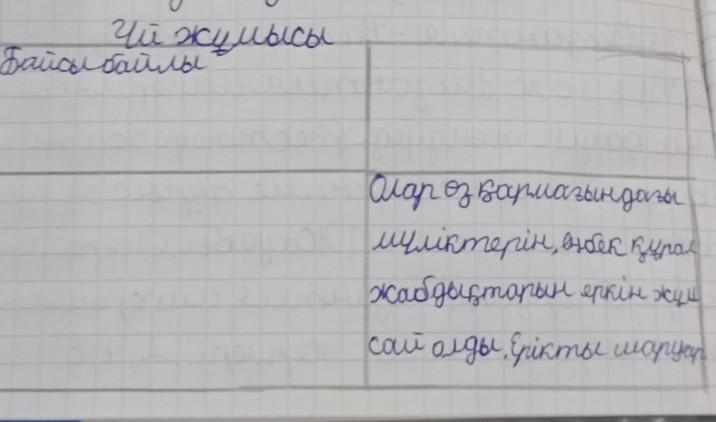 Үй жұмысы
Байсы байлы
Олар өз қармағындағы
мүліктерін, еңбек құрал
жабдықтарын еркін жұм
сай олды, Ерікты шаруар